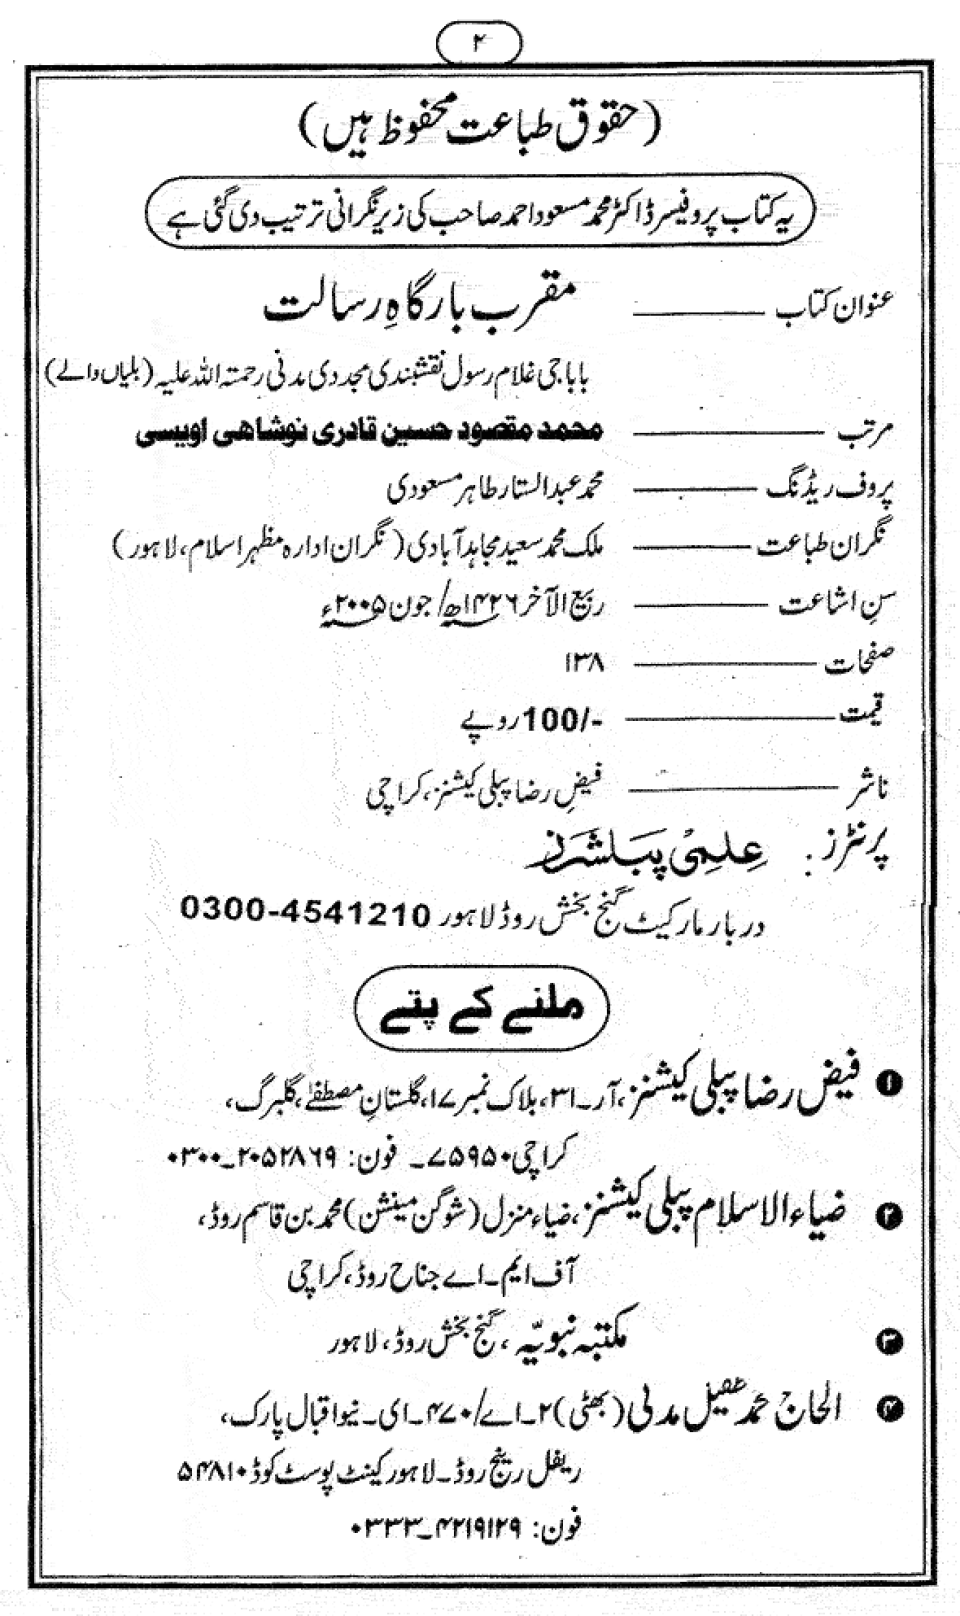 ۲
(حقوق طباعت محفوظ ہیں)
یہ کتاب پروفیسر ڈاکٹر محمد مسعود احمد صاحب کی زیرِ نگرانی ترتیب دی گئی ہے
عنوان کتاب ــــــ مقرب بارگاہِ رسالت
بابا جی غلام رسول نقشبندی مجددی مدنی رحمتہ اللہ علیہ (بلیاں والے)
مرتب ــــــ محمد مقصود حسین قادری نوشاهی اویسی
پروف ریڈنگ ــــــ محمد عبدالستار طاہر مسعودی
نگران طباعت ــــــ ملک محمد سعید مجاہد آبادی (نگران ادارہ مظہر اسلام، لاہور)
سنِ اشاعت ــــــ ربیع الآخر ۱۴۲۶ھ/ جون ۲۰۰۵ء
صفحات ــــــ ۱۳۸
قیمت ــــــ 100/- روپے
ناشر ــــــ فیضِ رضا پبلی کیشنز، کراچی
پرنٹرز : عِلمِی پَبلشرز
دربار مارکیٹ گنج بخش روڈ لاہور 0300-4541210
ملنے کے پتے
۱ فیض رضا پبلی کیشنز، آر۔۳۱، بلاک نمبر ۱۷، گلستانِ مصطفےٰ، گلبرگ،
کراچی ۷۵۹۵۰۔ فون: ۲۰۵۲۸۶۹۔۰۳۰۰
۲ ضیاء الاسلام پبلی کیشنز، ضیاء منزل (شوگن مینشن) محمد بن قاسم روڈ،
آف ایم۔اے جناح روڈ، کراچی
۳ مکتبہ نبویّہ، گنج بخش روڈ، لاہور
۴ الحاج محمد عقیل مدنی (بھٹی) ۲۔اے/۴۷۰۔ای۔نیو اقبال پارک،
ریفل رینج روڈ۔لاہور کینٹ پوسٹ کوڈ ۵۴۸۱۰
فون: ۴۲۱۹۱۲۹۔۰۳۳۳